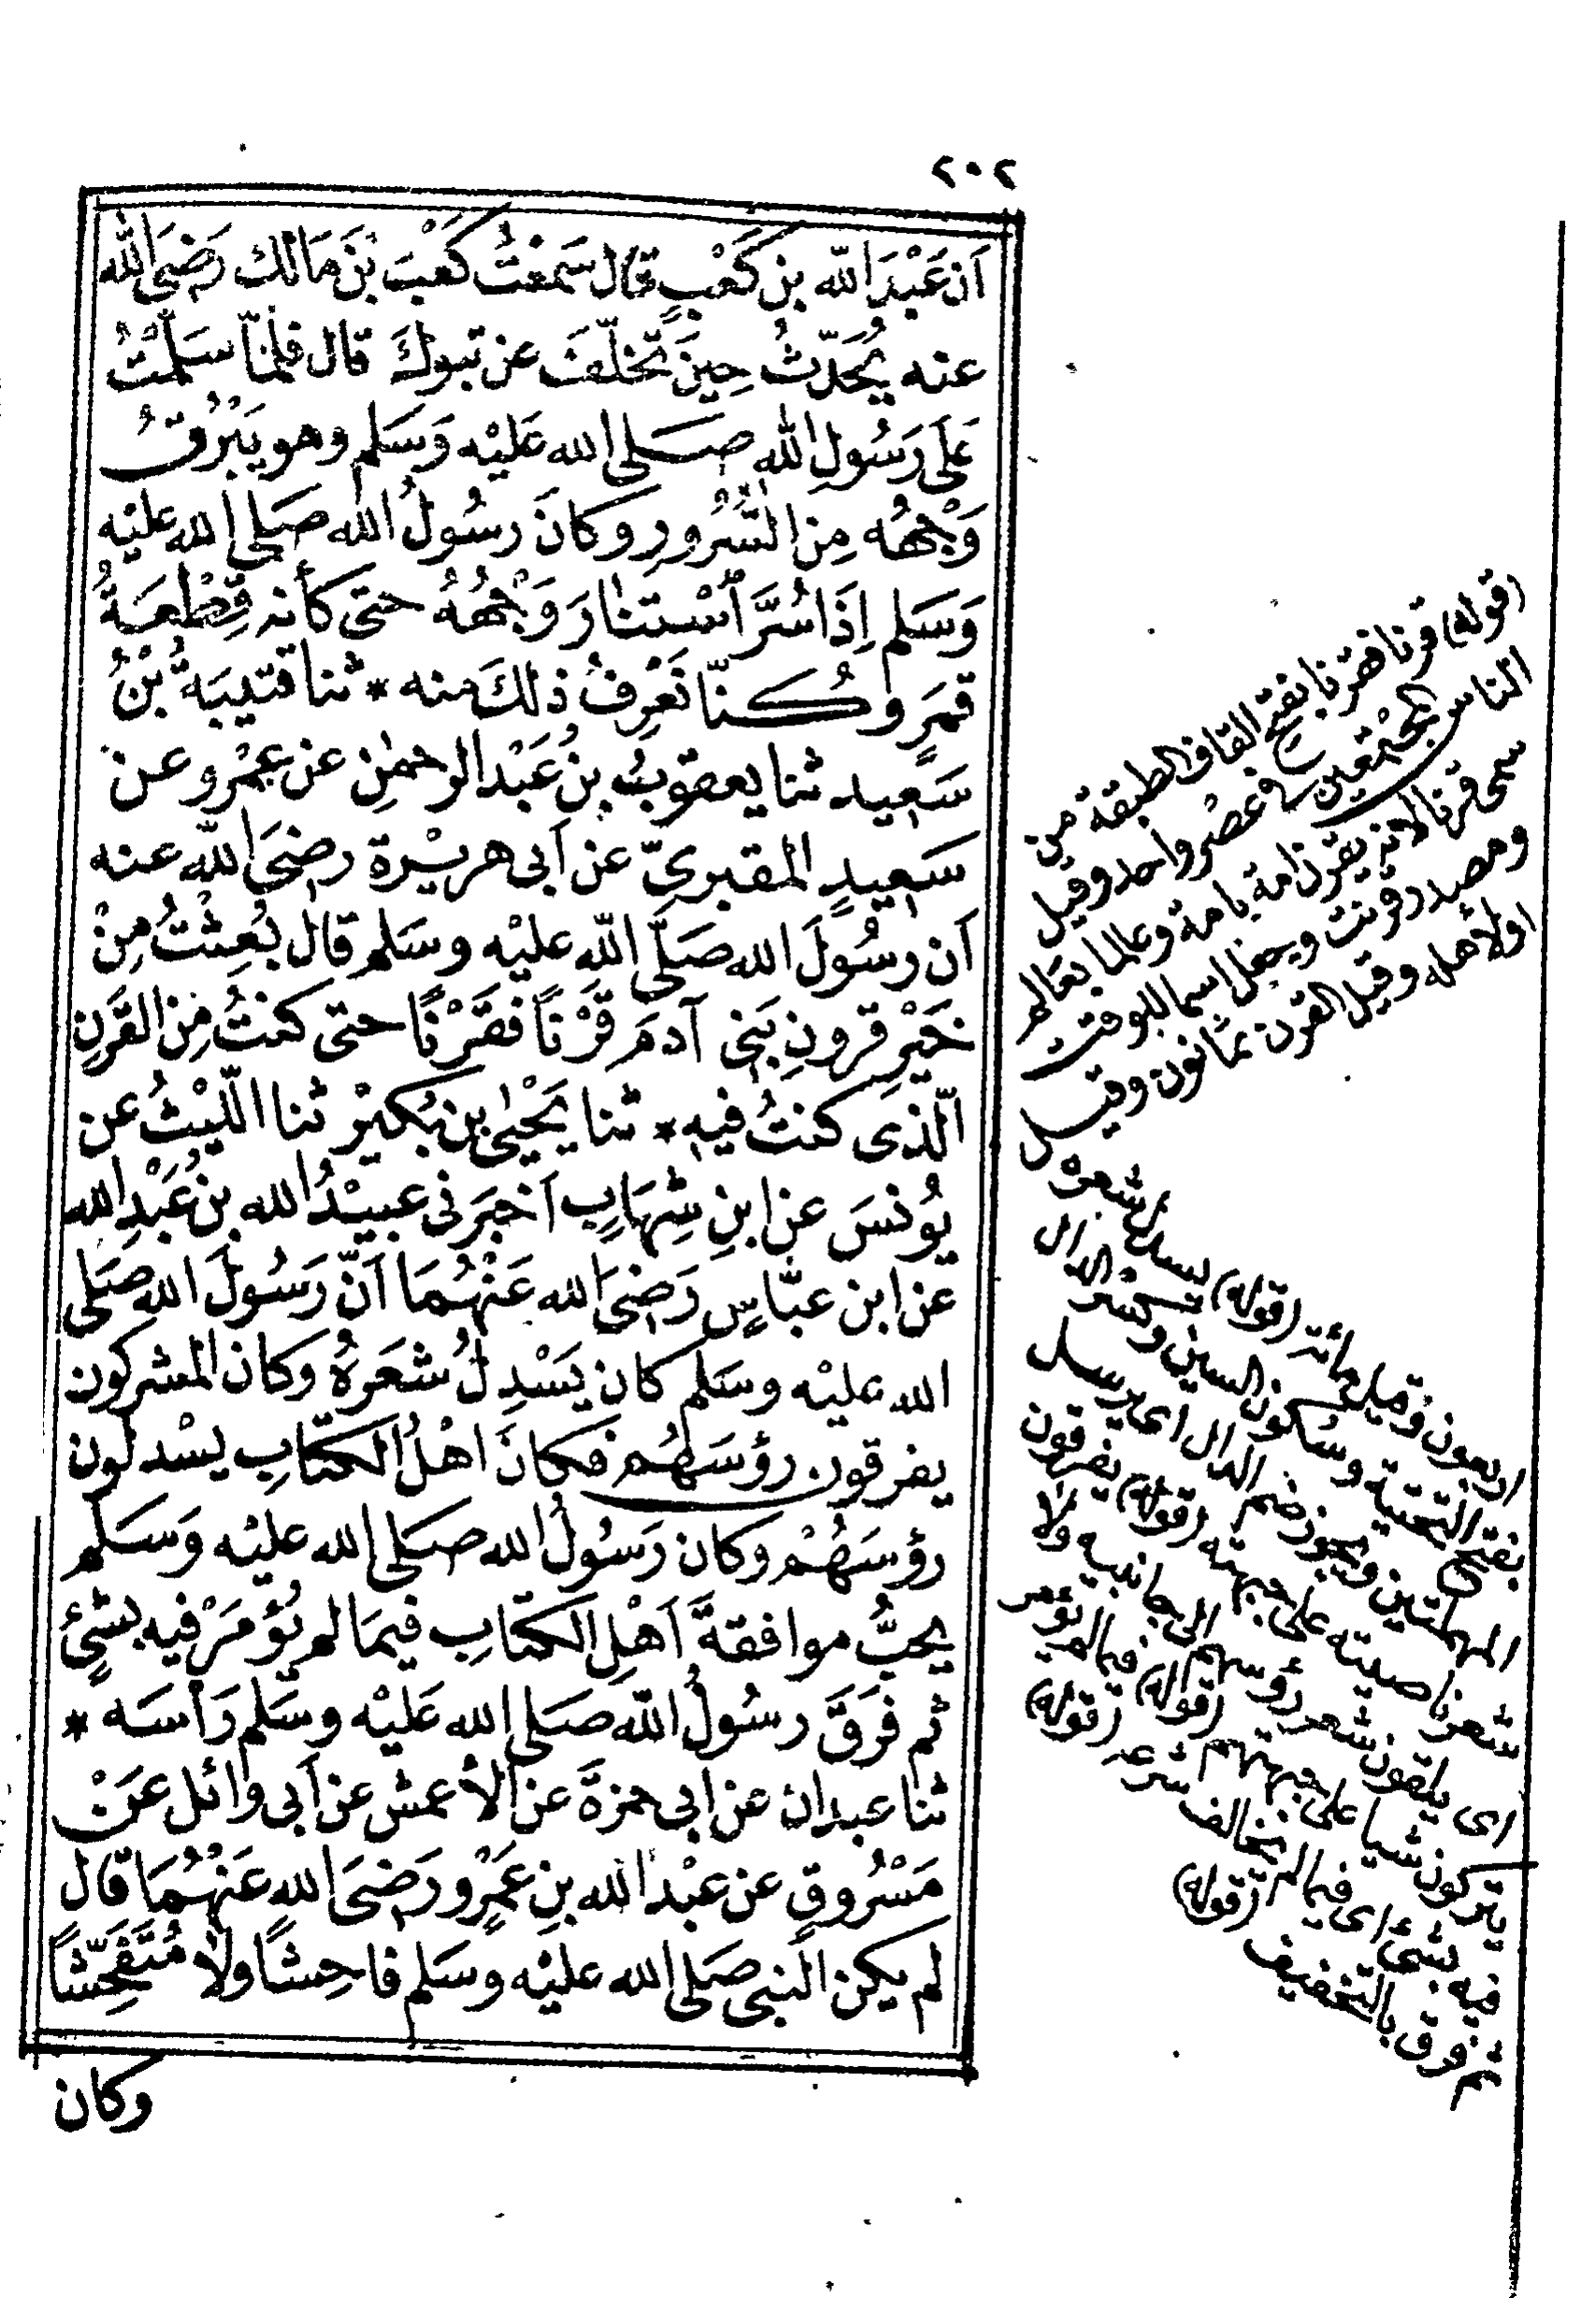 ٢٠٢
اَن عَبْدَ اللّه بن كَعْبٍ قال سَمعْتُ كَعْبَ بْنَ مَالك رَضىَ الله
عنه يُحَدّثُ حِينَ تَخلّفَ عن تبوكَ قال فلمّا سَلّمْتُ
عَلَى رَسُولِ اللهِ صَلى الله عَليْه وَسَلم وهو يَبْرُقُ
وَجْهُه مِن السُّرُورِ وكانَ رسُولُ الله صَلى الله عليْه
وَسَلم اِذَا سُرَّ اسْتنارَ وَجْهُهُ حتى كأنه قِطْعَةُ
قمَرٍ وكُنّا نَعْرِفُ ذلكَ منه * ثنا قتيبَةُ بْنُ
سَعيد ثنا يعقوبُ بنُ عَبْد الرحمٰنِ عن عَمْرو عن
سَعيدٍ المقبرىّ عن اَبى هريْرة رضىَ اللّه عنه
اَن رسُولَ الله صَلَّى اللّه عليْه وسَلم قال بُعِثْتُ مِنْ
خَيْرِ قرونِ بَنى آدمَ قَرْنًا فقَرْنًا حتى كنتُ مِن القَرنِ
الّذى كنتُ فيه * ثنا يَحْيىٰ بن بُكيْر ثنا اللّيْثُ عن
يُونسَ عن ابنِ شِهَابٍ اَخبَرَنى عبيْدُ الله بنُ عَبْدِ الله
عن ابن عبَّاسٍ رَضىَ الله عَنْهُمَا اَنّ رَسُولَ اللهِ صَلى
الله عليْه وسَلم كان يَسْدِلُ شعَرَهُ وكان المشركون
يفرقون رؤسَهُم فكانَ اهْلُ الكتابِ يسْدلون
رؤسَهُمْ وكان رَسُولُ الله صَلى الله عليْه وَسَلم
يحبُّ موافقةَ اَهْلِ الكتابِ فيمَا لم يُؤمَرْ فيه بشئٍ
ثم فرَقَ رسُولُ اللّه صَلى الله عَليْه وسَلم رَأسَه *
ثنا عبدان عن ابى حمزةَ عن الأعمش عن اَبى وائل عَنْ
مَسْرُوقٍ عن عبْد الله بنِ عَمْرٍو رَضىَ الله عَنْهُمَا قال
لم يكن النبى صَلى الله عليْه وسَلم فاحِشًا ولا مُتَفَحِّشًا
وكان
(قوله) قرنا فقرنا بفتح القاف الطبقة من
الناس المجْتمعين فى عصْر واحد وقيل
سمى قرنا لانه يقرن امة بامة وعالما بعالم
ومصدر قرنت ويجعل اسما للوقت
اولأهله وقيل القرن ثمانون وقيل
اربعون وقيل مائة (قوله) يسدل شعره
بفتح التحتية وسكون السين وكسر الدال
المهملتين ويجوز ضم الدال اى يرسل
شعر ناصيته على جبهته (قوله) يفرقون
اى يلقون شعر رؤسهم الى جانبيه ولا
يتركون شيا على جبهتهم (قوله) فيما لم يؤمر
فيه بشئ اى فيما لم يخالف شرعه (قوله)
ثم فرق بالتخفيف (قوله)